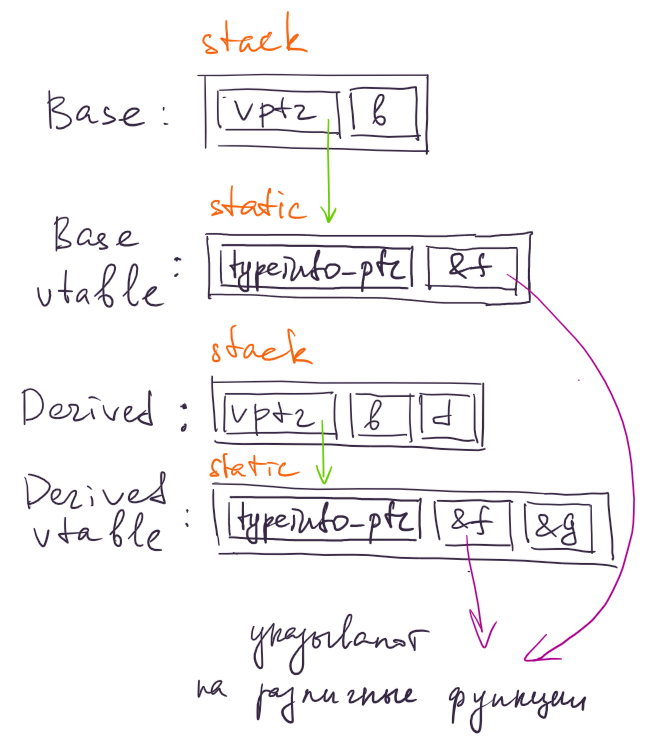 stack
Base : vptr b
static
Base
vtable : typeinfo_ptr &f
stack
Derived : vptr b d
static
Derived
vtable : typeinfo_ptr &f &g
указывают
на различные функции